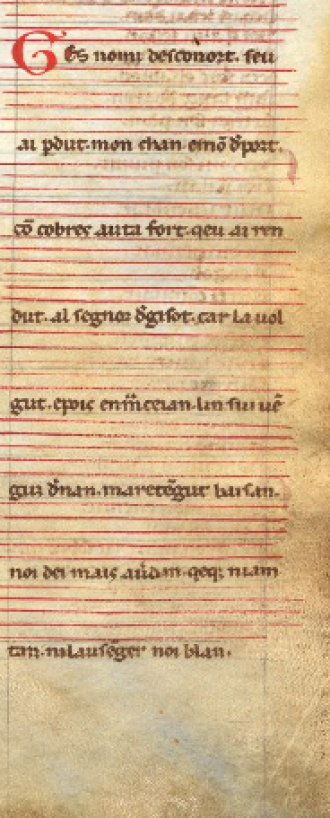 Ges nom desconort. seu
ai pdut. mon chan emō dport.
cō cobreç auta fort. qeu ai ren
dut. al segnor dgisot. car la uol
gut. epoic en celan. lin sui uē
guz dnan. maretēgut baisan.
noi dei mais qeqe mam
tan. nilausēger noi blan.